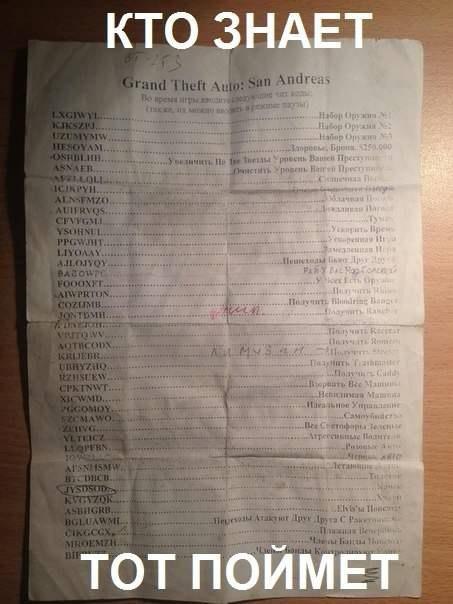 КТО ЗНАЕТ
Grand Theft Auto: San Andreas
Во время игры вводите следующие чит коды:
(также, их можно вводить в режиме паузы)
LXGIWYL Набор Оружия №1
KJKSZPJ Набор Оружия №2
UZUMYMW Набор Оружия №3
HESOYAM Здоровье, Броня, $250.000
OSRBLHH Увеличить На Две Звезды Уровень Вашей Преступности
ASNAEB Очистить Уровень Вашей Преступности
Солнечная
ICIKPYH
ALNSFMZO Облачная Погода
AUIFRVQS Дождливая Погода
CFVFGMJ Туман
YSOHNUL Ускорить Время
PPGWJHT Ускоренная Игра
LIYOAAY Замедленная Игра
AJLOJYQY Пешеходы Бьют Друг Друга
FOOOXFT У Всех Есть Оружие
AIWPRTON Получить Rhino
CQZIJMB Получить Bloodring Banger
JQNTDMH Получить Rancher
VPJTQWV Получить Racecar
AQTBCODX Получить Romero
KRIJEBR Получить
UBHYZHQ Получить Trashmaster
RZHSUEW Получить Caddy
CPKTNWT Взорвать Все Машины
XICWMD Невидимая Машина
PGGOMOY Идеальное Управление
SZCMAWO Самоубийство
ZEIIVG Все Светофоры Зеленые
YLTEICZ Агрессивные Водители
LLQPFBN Розовые Авто
AFSNMSMW Летающие
BTCDBCB
JYSDSOD
KVGYZQK
ASBHGRB Elvis'ы Повсюду
BGLUAWML Пешеходы Атакуют Друг Друга С
CIKGCGX Пляжная Вечеринка
MROEMZH Члены Банды Повсюду
Члены Банды
ТОТ ПОЙМЕТ